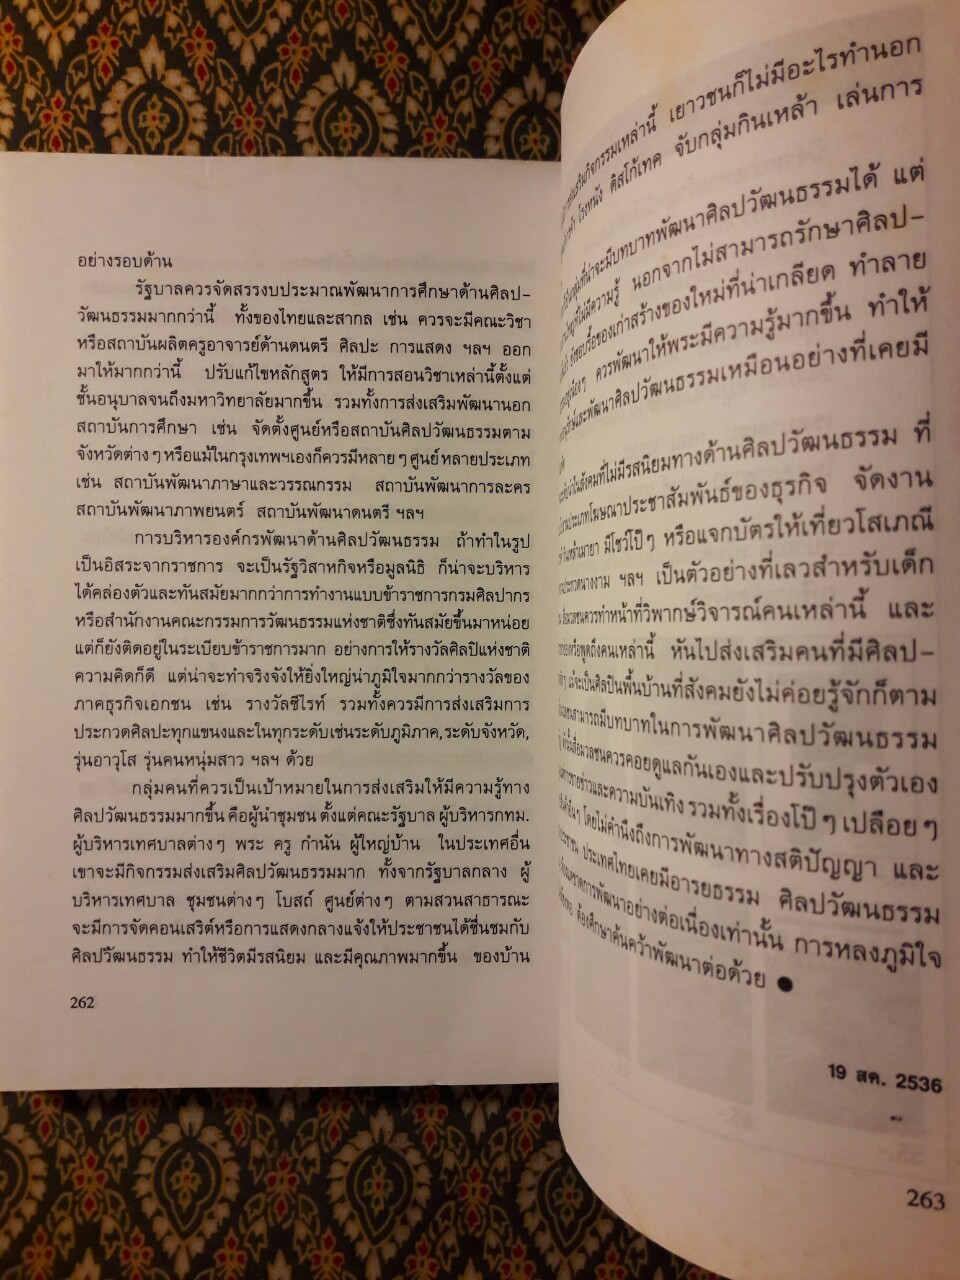 อย่างรอบด้าน
รัฐบาลควรจัดสรรงบประมาณพัฒนาการศึกษาด้านศิลป-
วัฒนธรรมมากกว่านี้ ทั้งของไทยและสากล เช่น ควรจะมีคณะวิชา
หรือสถาบันผลิตครูอาจารย์ด้านดนตรี ศิลปะ การแสดง ฯลฯ ออก
มาให้มากกว่านี้ ปรับแก้ไขหลักสูตร ให้มีการสอนวิชาเหล่านี้ตั้งแต่
ชั้นอนุบาลจนถึงมหาวิทยาลัยมากขึ้น รวมทั้งการส่งเสริมพัฒนานอก
สถาบันการศึกษา เช่น จัดตั้งศูนย์หรือสถาบันศิลปวัฒนธรรมตาม
จังหวัดต่าง ๆ หรือแม้ในกรุงเทพฯเองก็ควรมีหลาย ๆ ศูนย์ หลายประเภท
เช่น สถาบันพัฒนาภาษาและวรรณกรรม สถาบันพัฒนาการละคร
สถาบันพัฒนาภาพยนตร์ สถาบันพัฒนาดนตรี ฯลฯ
การบริหารองค์กรพัฒนาด้านศิลปวัฒนธรรม ถ้าทำในรูป
เป็นอิสระจากราชการ จะเป็นรัฐวิสาหกิจหรือมูลนิธิ ก็น่าจะบริหาร
ได้คล่องตัวและทันสมัยมากกว่าการทำงานแบบข้าราชการกรมศิลปากร
หรือสำนักงานคณะกรรมการวัฒนธรรมแห่งชาติซึ่งทันสมัยขึ้นมาหน่อย
แต่ก็ยังติดอยู่ในระเบียบข้าราชการมาก อย่างการให้รางวัลศิลปินแห่งชาติ
ความคิดก็ดี แต่น่าจะทำจริงจังให้ยิ่งใหญ่น่าภูมิใจมากกว่ารางวัลของ
ภาคธุรกิจเอกชน เช่น รางวัลซีไรท์ รวมทั้งควรมีการส่งเสริมการ
ประกวดศิลปะทุกแขนงและในทุกระดับเช่นระดับภูมิภาค,ระดับจังหวัด,
รุ่นอาวุโส รุ่นคนหนุ่มสาว ฯลฯ ด้วย
กลุ่มคนที่ควรเป็นเป้าหมายในการส่งเสริมให้มีความรู้ทาง
ศิลปวัฒนธรรมมากขึ้น คือผู้นำชุมชน ตั้งแต่คณะรัฐบาล ผู้บริหารกทม.
ผู้บริหารเทศบาลต่างๆ พระ ครู กำนัน ผู้ใหญ่บ้าน ในประเทศอื่น
เขาจะมีกิจกรรมส่งเสริมศิลปวัฒนธรรมมาก ทั้งจากรัฐบาลกลาง ผู้
บริหารเทศบาล ชุมชนต่างๆ โบสถ์ ศูนย์ต่างๆ ตามสวนสาธารณะ
จะมีการจัดคอนเสริต์หรือการแสดงกลางแจ้งให้ประชาชนได้ชื่นชมกับ
ศิลปวัฒนธรรม ทำให้ชีวิตมีรสนิยม และมีคุณภาพมากขึ้น ของบ้าน
262
เสริมกิจกรรมเหล่านี้ เยาวชนก็ไม่มีอะไรทำนอก
โรงหนัง ดิสโก้เทค จับกลุ่มกินเหล้า เล่นการ
ที่น่าจะมีบทบาทพัฒนาศิลปวัฒนธรรมได้ แต่
ที่ไม่มีความรู้ นอกจากไม่สามารถรักษาศิลป-
รื้อของเก่าสร้างของใหม่ที่น่าเกลียด ทำลาย
ควรพัฒนาให้พระมีความรู้มากขึ้น ทำให้
และพัฒนาศิลปวัฒนธรรมเหมือนอย่างที่เคยมี
ในสังคมที่ไม่มีรสนิยมทางด้านศิลปวัฒนธรรม ที่
โฆษณาประชาสัมพันธ์ของธุรกิจ จัดงาน
มีโชว์โป๊ๆ หรือแจกบัตรให้เที่ยวโสเภณี
นางงาม ฯลฯ เป็นตัวอย่างที่เลวสำหรับเด็ก
ควรทำหน้าที่วิพากษ์วิจารณ์คนเหล่านี้ และ
หรือพูดถึงคนเหล่านี้ หันไปส่งเสริมคนที่มีศิลป-
จะเป็นศิลปินพื้นบ้านที่สังคมยังไม่ค่อยรู้จักก็ตาม
สามารถมีบทบาทในการพัฒนาศิลปวัฒนธรรม
สื่อมวลชนควรคอยดูแลกันเองและปรับปรุงตัวเอง
ขายข่าวและความบันเทิง รวมทั้งเรื่องโป๊ ๆ เปลือย ๆ
โดยไม่คำนึงถึงการพัฒนาทางสติปัญญา และ
ประเทศไทยเคยมีอารยธรรม ศิลปวัฒนธรรม
การพัฒนาอย่างต่อเนื่องเท่านั้น การหลงภูมิใจ
ต้องศึกษาค้นคว้าพัฒนาต่อด้วย ●
19 สค. 2536
263